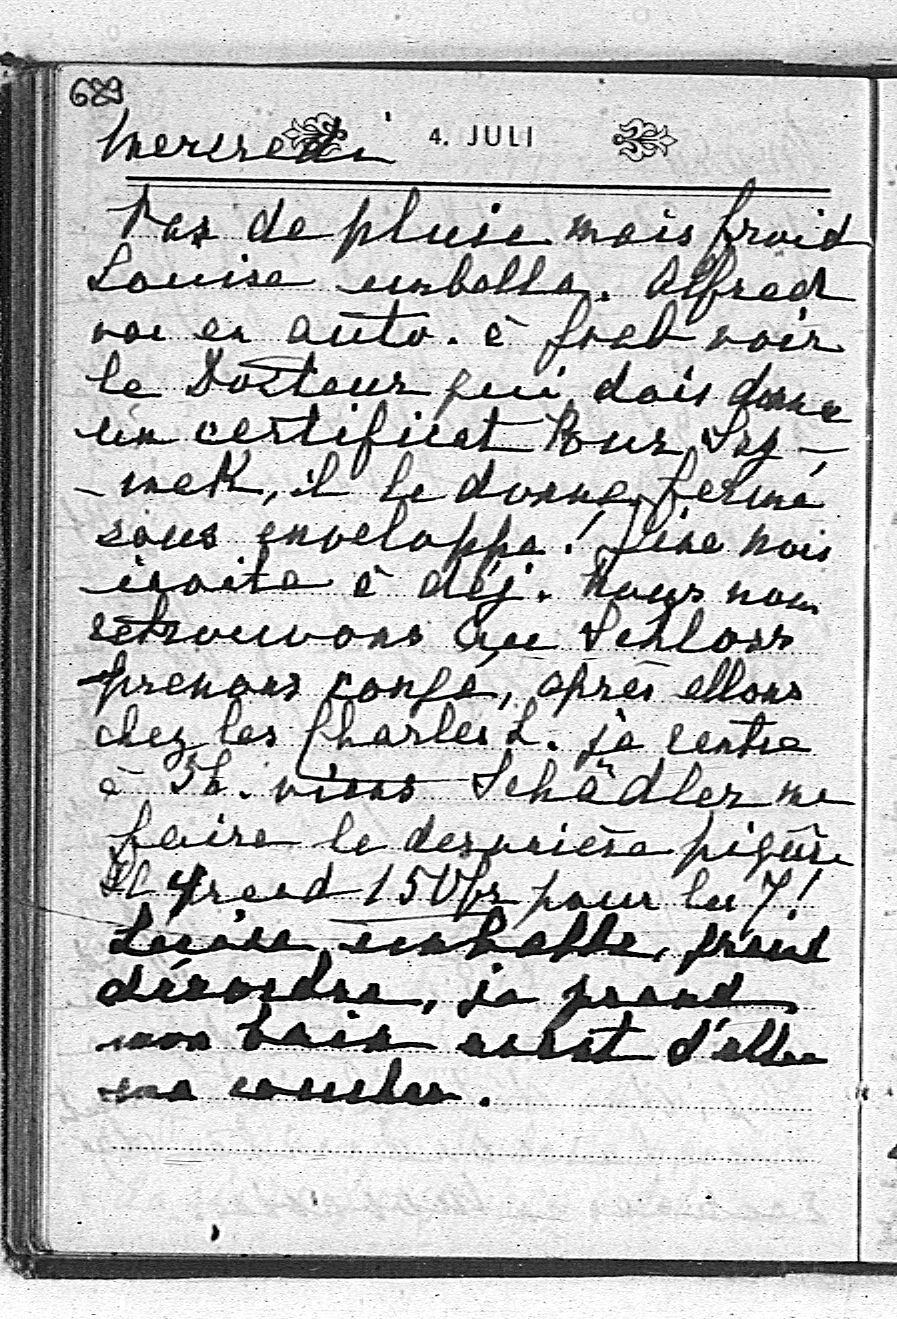 689
Mercredi 4. JULI
Pas de pluie mais froid
Louise emballe. Alfred
va en auto. à voir
le Docteur qui dois donne
un certificat Pour
il le donne fermé
sous enveloppe! Fine nous
invite à déj. Nous nous
retrouvons au Schloss
prenons congé, après allons
chez les Charles L. je rentre
à 5h. viens Schädler me
faire le dernière piqûre
Il prend 150fr pour les 7!
Louise emballe, grand
désordre, je prend
mon bain avant d'aller
me coucher.